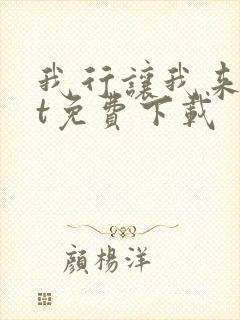 我行讓我来
t免費下載
顏楊洋